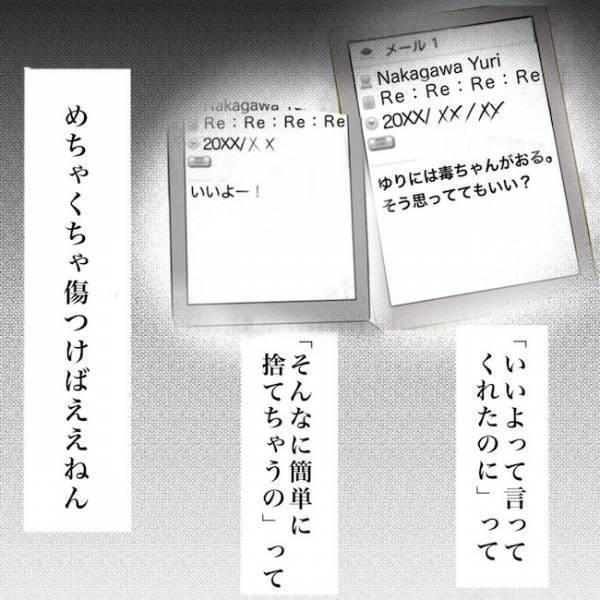 メール 1
Nakagawa Yuri
Re：Re：Re：Re
20XX/ XX / XX
ゆりには毒ちゃんがおる。
そう思っててもいい？
Nakagawa Yuri
Re：Re：Re：Re
20XX/ X X
いいよー！
「いいよって言って
くれたのに」って
「そんなに簡単に
捨てちゃうの」って
めちゃくちゃ傷つけばええねん